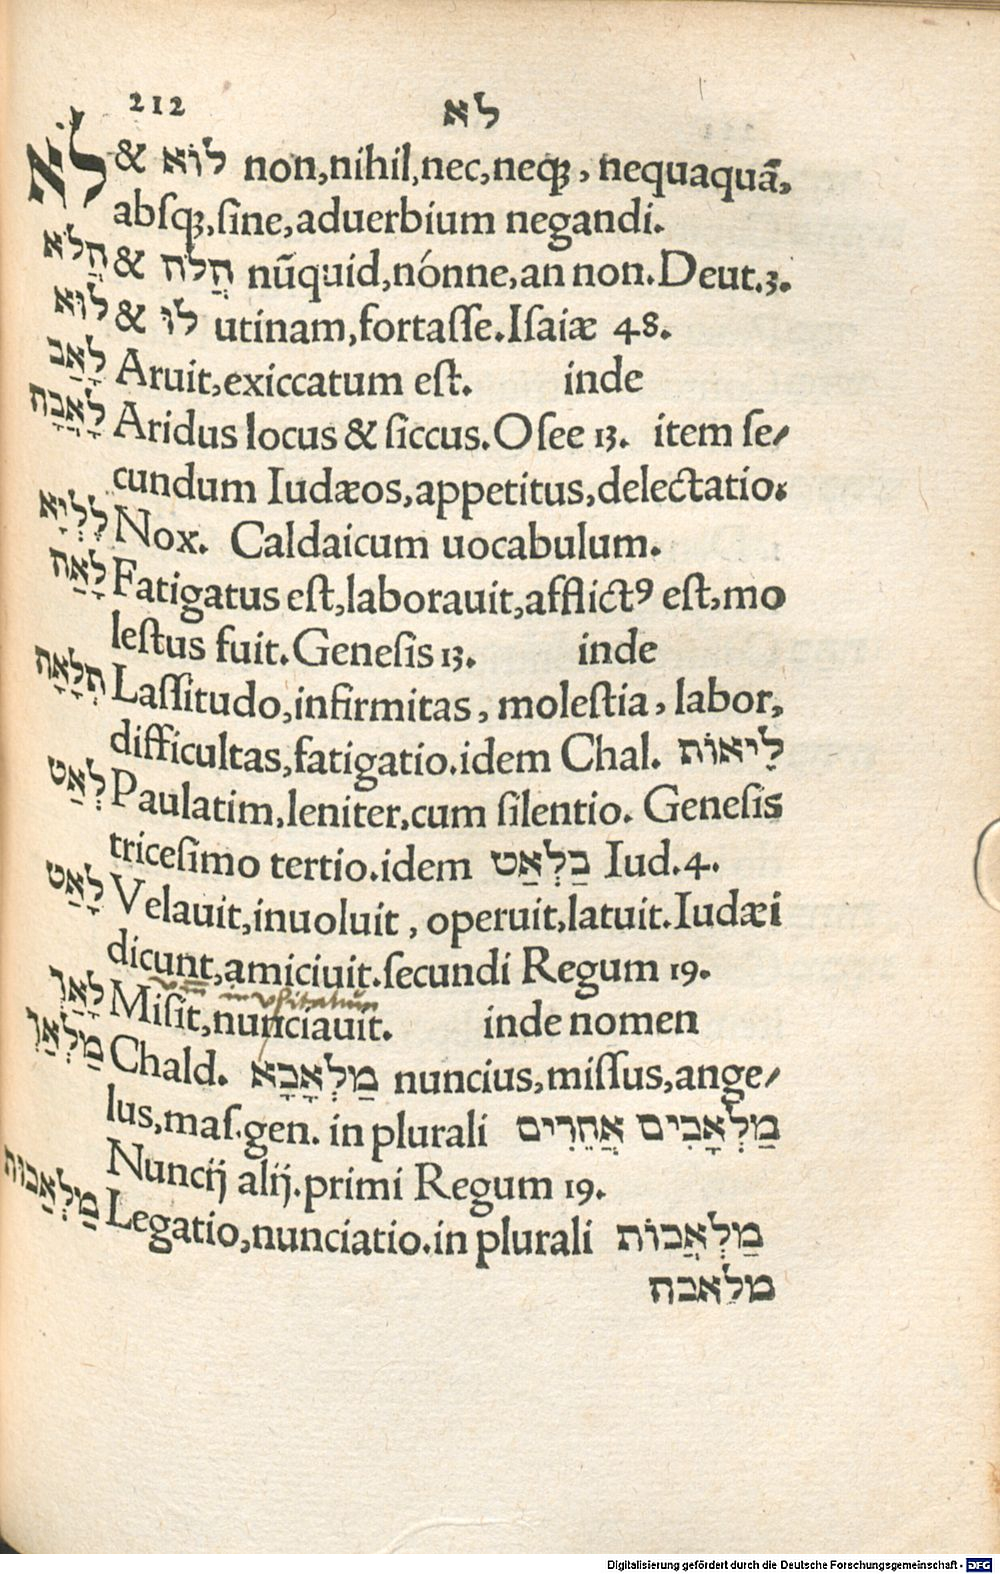 212
לא
לֹא & לוֹא non,nihil,nec,neq́ꝫ, nequaquā,
abſq́ꝫ,ſine,aduerbium negandi.
הֲלֹא & הֲלֹה nūquid,nónne,an non.Deut.3.
לוּא & לוּ utinam,fortaſſe.Iſaiæ 48.
לָאַב Aruit,exiccatum eſt. inde
לָאֲבָה Aridus locus & ſiccus.Oſee 13. item ſe⸗
cundum Iudæos,appetitus,delectatio.
לֵלְיָא Nox. Caldaicum uocabulum.
לָאַה Fatigatus eſt,laborauit,afflictꝰ eſt,mo
leſtus fuit.Geneſis 13. inde
תְּלָאָה Laſſitudo,infirmitas, moleſtia, labor,
difficultas,fatigatio.idem Chal. לֵיאוֹת
לְאַט Paulatim,leniter,cum ſilentio. Geneſis
triceſimo tertio.idem בַלְאַט Iud.4.
לָאַט Velauit,inuoluit, operuit,latuit.Iudæi
dicunt,amiciuit.ſecundi Regum 19.
inuſitatum
לָאַך Miſit,nunciauit. inde nomen
מַלְאַך Chald. מַלְאָכָא nuncius,miſſus,ange⸗
lus,maſ.gen. in plurali מַלְאָכִים אֲחֵרִים
Nuncij alij.primi Regum 19.
מַלְאַכוּת Legatio,nunciatio.in plurali מַלְאֲכוֹת
מלאכה
Digitalisierung gefördert durch die Deutsche Forschungsgemeinschaft - DFG